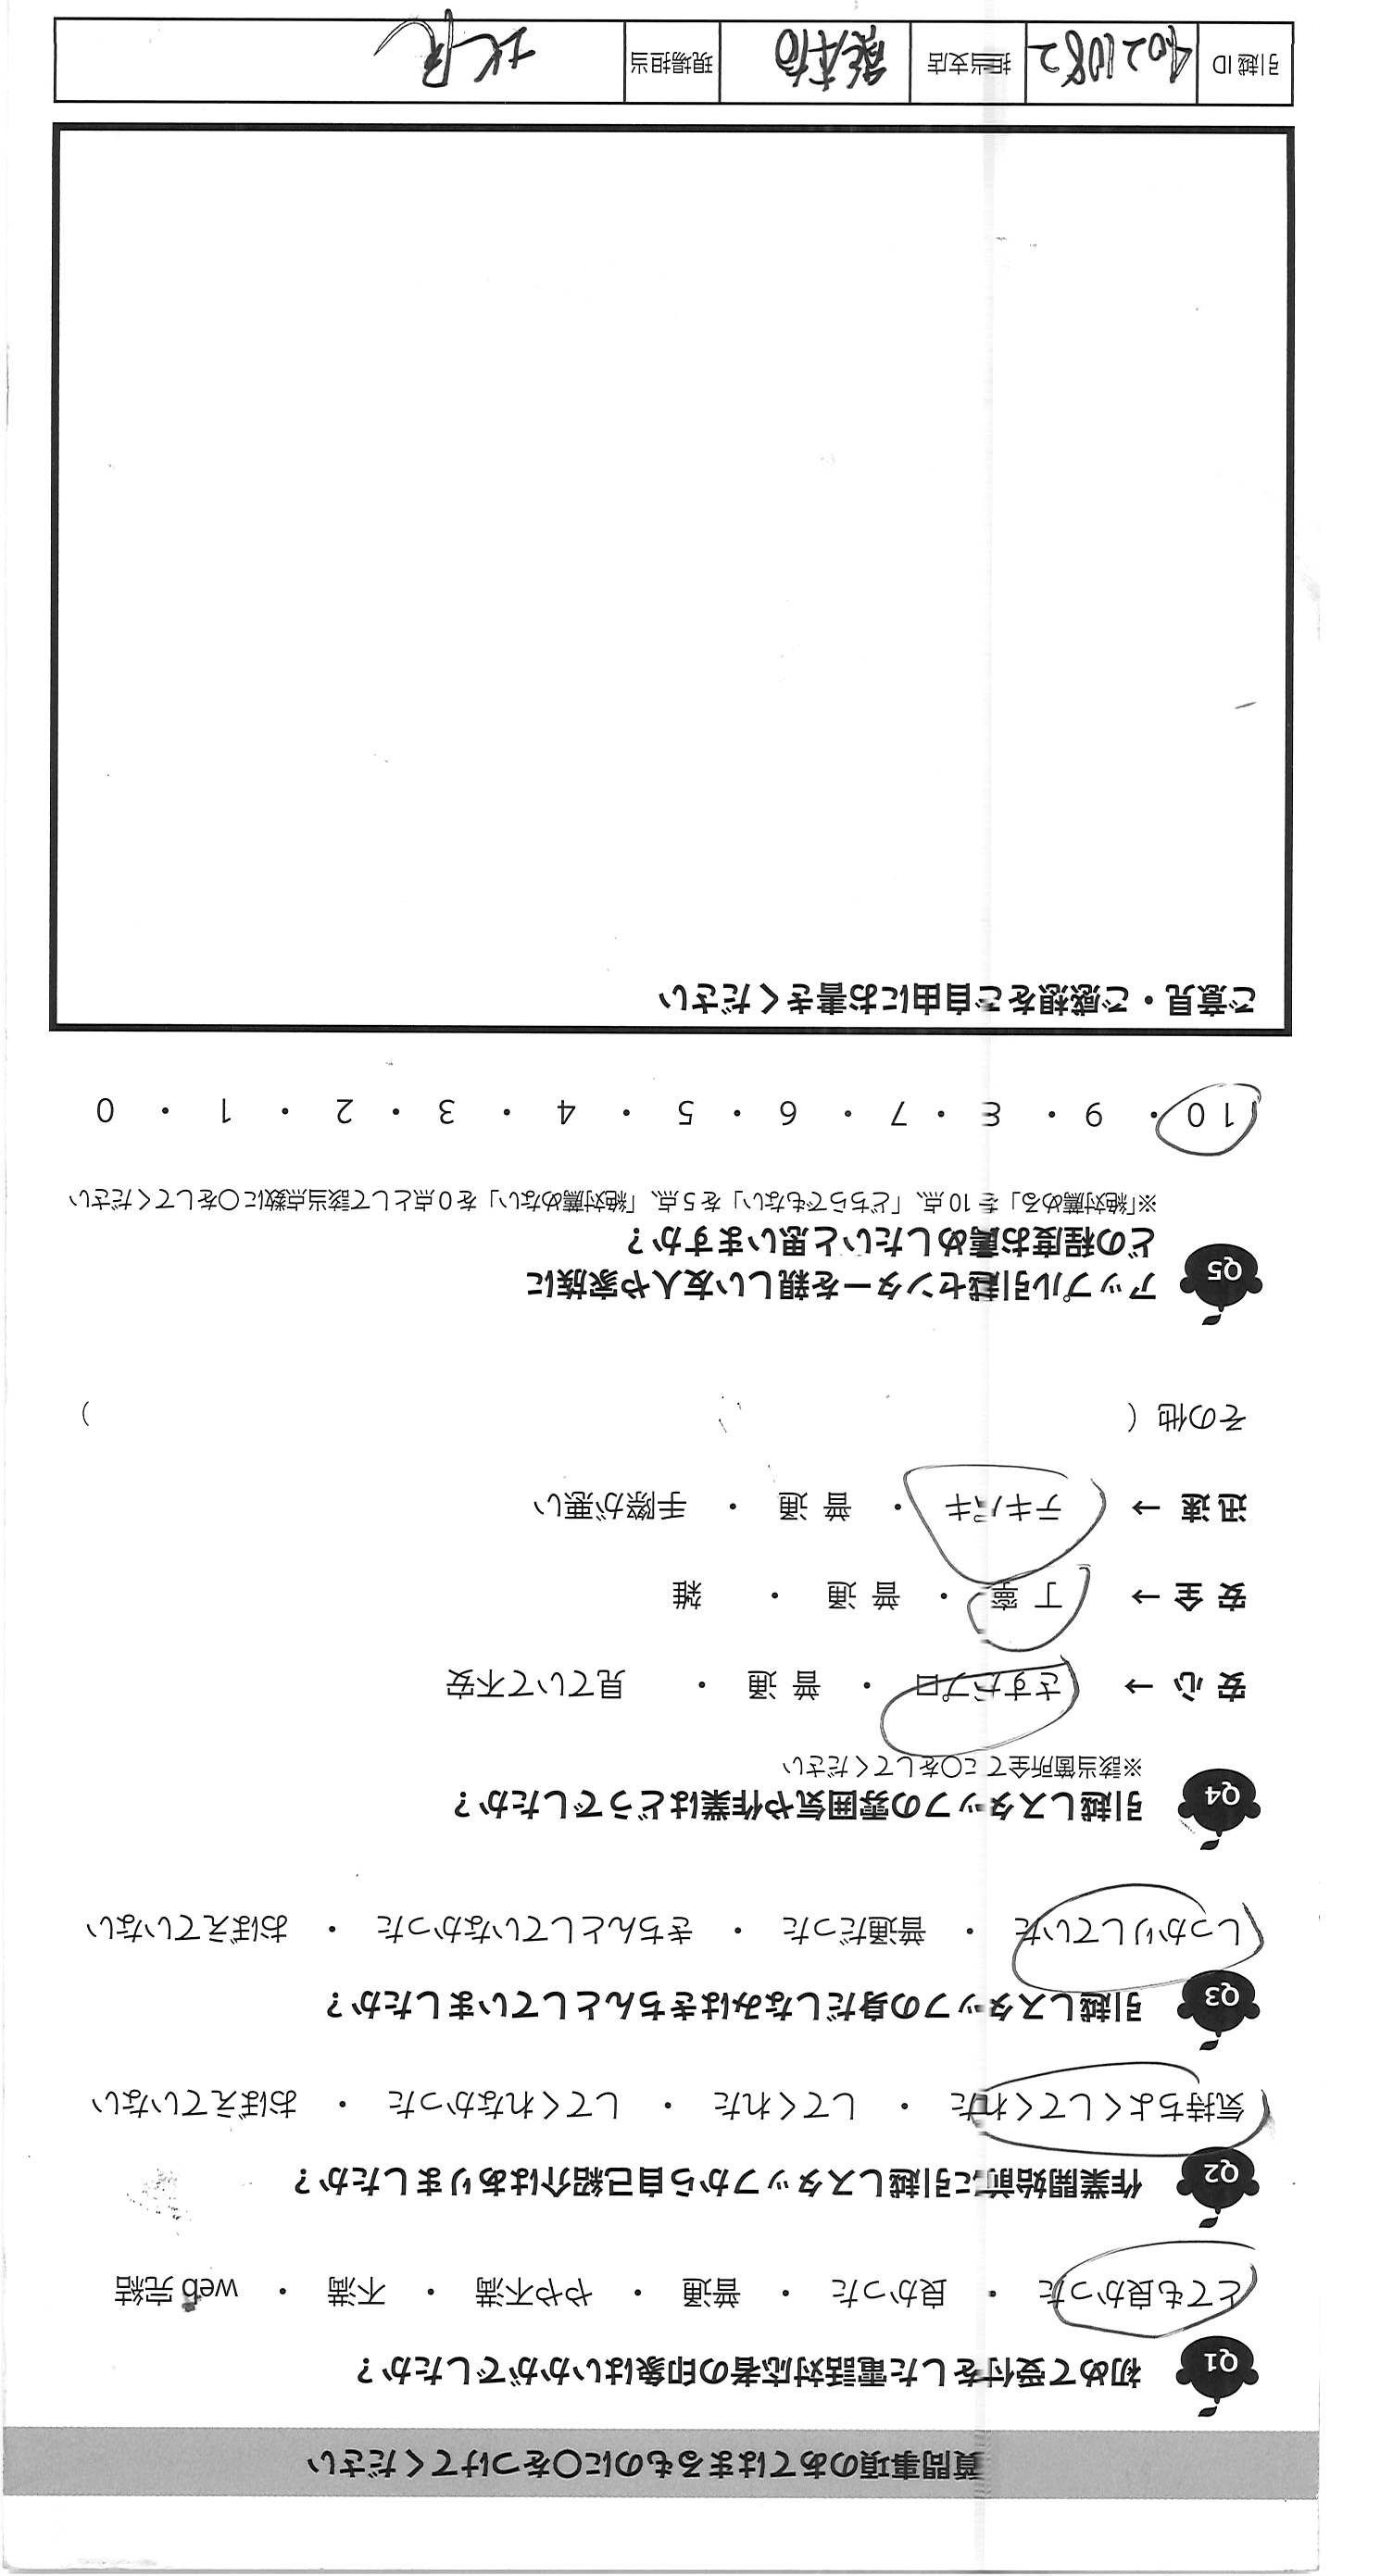 質問事項のあてはまるものに〇をつけてください
Q1 初めて受付をした電話対応者の印象はいかがでしたか？
とても良かった ・ 良かった ・ 普通 ・ やや不満 ・ 不満 ・ web 完結
Q2 作業開始前に引越しスタッフから自己紹介はありましたか？
気持ちよくしてくれた ・ してくれた ・ してくれなかった ・ おぼえていない
Q3 引越しスタッフの身だしなみはきちんとしていましたか？
しっかりしていた ・ 普通だった ・ きちんとしていなかった ・ おぼえていない
Q4 引越しスタッフの雰囲気や作業はどうでしたか？
※該当箇所全てに〇をしてください
安 心 → さすがプロ ・ 普 通 ・ 見ていて不安
安 全 → 丁 寧 ・ 普 通 ・ 雑
迅 速 → テキパキ ・ 普 通 ・ 手際が悪い
その他（ ）
Q5 アップル引越センターを親しい友人や家族に
どの程度お薦めしたいと思いますか？
※「絶対薦める」を 10 点、「どちらでもない」を 5 点、「絶対薦めない」を 0 点として該当点数に〇をしてください
10 ・ 9 ・ 8 ・ 7 ・ 6 ・ 5 ・ 4 ・ 3 ・ 2 ・ 1 ・ 0
ご意見・ご感想をご自由にお書きください
引越 ID 4021082 担当支店 現場担当